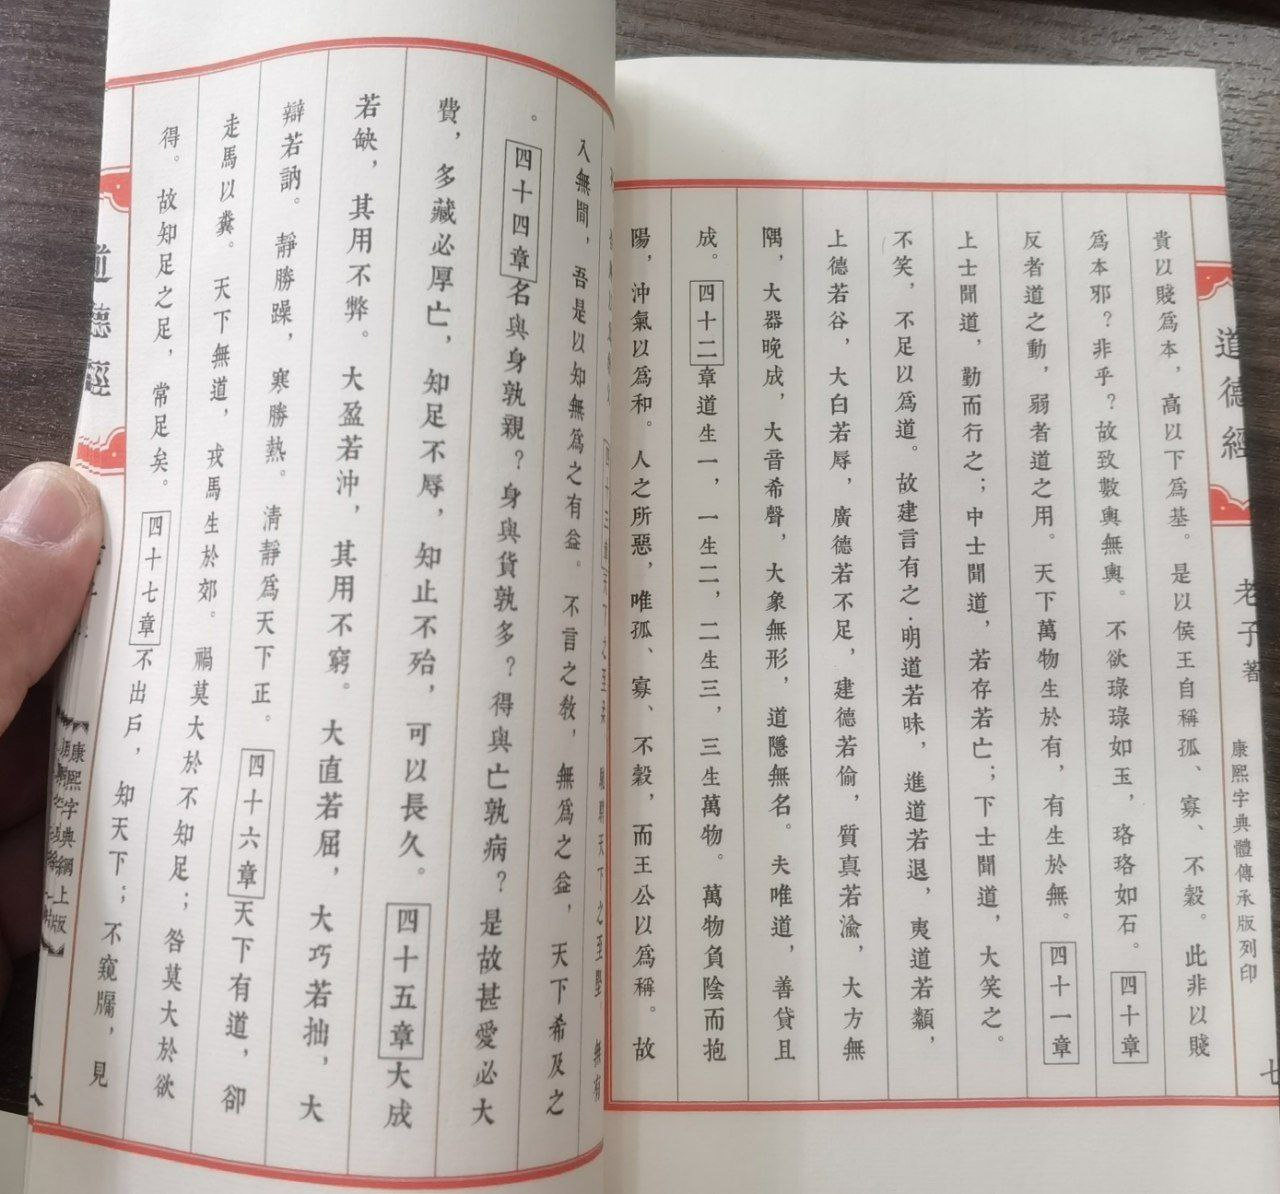 道德經
老子著
康熙字典體傳承版列印
七
貴以賤爲本，高以下爲基。是以侯王自稱孤、寡、不穀。此非以賤
爲本邪？非乎？故致數輿無輿。不欲琭琭如玉，珞珞如石。四十章
反者道之動，弱者道之用。天下萬物生於有，有生於無。四十一章
上士聞道，勤而行之；中士聞道，若存若亡；下士聞道，大笑之。
不笑，不足以爲道。故建言有之：明道若昧，進道若退，夷道若纇，
上德若谷，大白若辱，廣德若不足，建德若偷，質真若渝，大方無
隅，大器晚成，大音希聲，大象無形，道隱無名。夫唯道，善貸且
成。四十二章道生一，一生二，二生三，三生萬物。萬物負陰而抱
陽，沖氣以爲和。人之所惡，唯孤、寡、不穀，而王公以爲稱。故
四十三章天下之至柔，馳騁天下之至堅。無有
入無間，吾是以知無爲之有益。不言之教，無爲之益，天下希及之
。四十四章名與身孰親？身與貨孰多？得與亡孰病？是故甚愛必大
費，多藏必厚亡，知足不辱，知止不殆，可以長久。四十五章大成
若缺，其用不弊。大盈若沖，其用不窮。大直若屈，大巧若拙，大
辯若訥。靜勝躁，寒勝熱。清靜爲天下正。四十六章天下有道，卻
走馬以糞。天下無道，戎馬生於郊。禍莫大於不知足；咎莫大於欲
得。故知足之足，常足矣。四十七章不出戶，知天下；不窺牖，見
道德經
康熙字典網上版